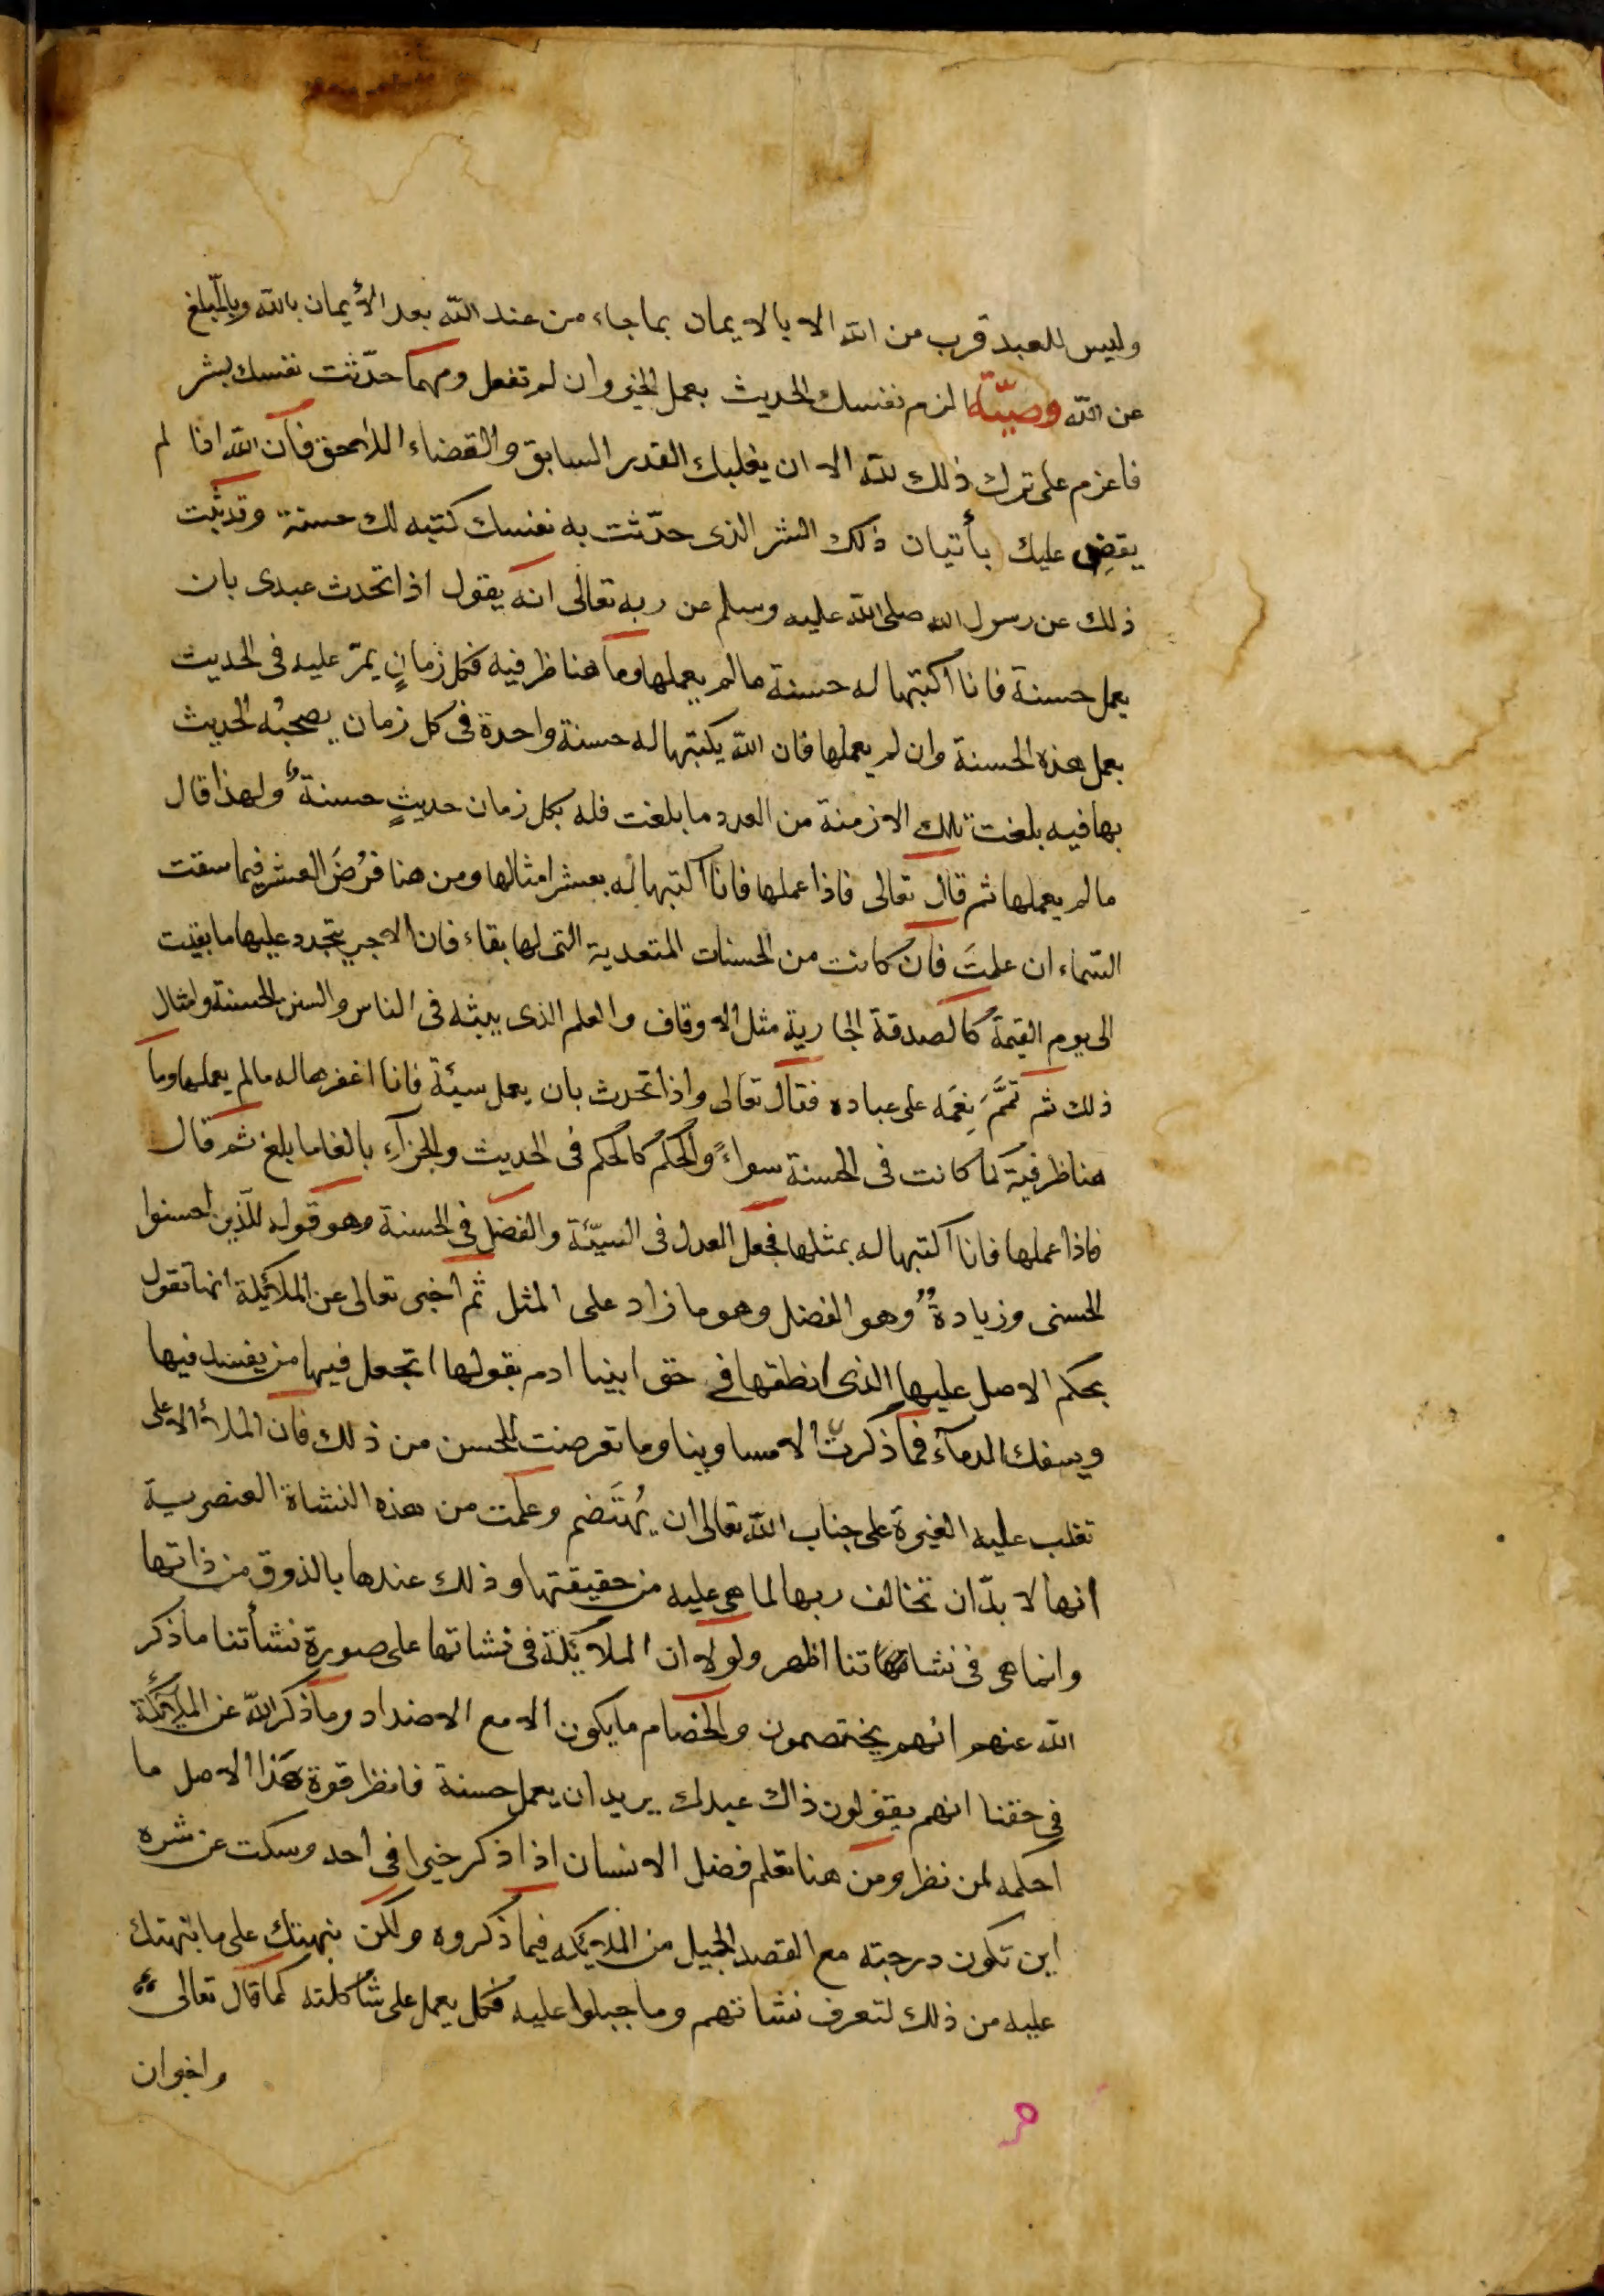 وليس للعبد قرب من الله الا بالايمان بما جاء من عند الله بعد الأيمان بالله وبالمبلغ
عن الله وصيّة الزم نفسك الحديث بعمل الخير وان لم تفعل ومهما حدّثت نفسك بشر
فاعزم على ترك ذلك لله الا ان يغلبك القدر السابق والقضاء اللاحق فان الله اذا لم
يقضِ عليك بأتيان ذلك الشر الذى حدّثت به نفسك كتبه لك حسنة وقد ثبت
ذلك عن رسول الله صلى الله عليه وسلم عن ربه تعالى انه يقول اذا تحدث عبدى بان
يعمل حسنة فانا اكتبها له حسنة ما لم يعملها وما هنا ظرفيه فكل زمانٍ يمرّ عليه فى الحديث
بعمل هذه الحسنة وان لم يعملها فان الله يكتبها له حسنة واحدة فى كل زمان يصحبُه الحديث
بها فيه بلغت تلك الازمنة من العدد ما بلغت فله بكل زمان حديثٍ حسنة ولهذا قال
ما لم يعملها ثم قال تعالى فاذا عملها فانا اكتبها له بعشر امثالها ومن هنا فرُضَ العشر فيما سقت
السّماء ان علمتَ فان كانت من الحسنات المتعدية التى لها بقاء فان الاجر يتجدد عليها ما بقيت
الى يوم القيمة كالصدقة الجارية مثل الاوقاف والعلم الذى يبثه فى الناس والسنن الحسنة وامثال
ذلك ثم تمَّمَ نِعَمَه على عباده فقال تعالى واذا تحدث بان يعمل سيئة فانا اغفرها له ما لم يعملها وما
هنا ظرفية كما كانت فى الحسنة سواءً والحكم كالحكم فى الحديث والجزآء بالغا ما بلغ ثم قال
فاذا عملها فانا اكتبها له بمثلها فجعل العدل فى السيّئة والفضل فى الحسنة وهو قوله للّذين احسنوا
الحسنى وزيادةٌ وهو الفضل وهو ما زاد على المثل ثم اخبر تعالى عن الملائكة انها تقول
بحكم الاصل عليها الذى انطقها فى حق ابينا ادم بقولها اتجعل فيها من يفسد فيها
ويسفك الدمآء فما ذكرت الا مساوينا وما تعرضت للحسن من ذلك فان الملأ الاعلى
تغلب عليه الغيرة على جناب الله تعالى ان يُهتَضم وعلمت من هذه النشاة العنصرية
انها لا بدّ ان تخالف ربها لما هى عليه من حقيقتها وذلك عندها بالذوق من ذاتها
وانما هى فى نشاتنا اظهر ولولا ان الملائكة فى نشاتها على صورة نشأتنا ما ذكر
الله عنهم انهم يختصمون والخصام ما يكون الا مع الاضداد وما ذكر الله عن الملائكة
فى حقنا انهم يقولون ذاك عبدك يريد ان يعمل حسنة فانظر قوة هذا الاصل ما
احكمه لمن نظر ومن هنا تعلم فضل الانسان اذا ذكر خيرا فى احد وسكت عن شره
اين تكون درجته مع القصد الجميل من الملائكه فيما ذكروه ولكن نبهتك على ما نبهتك
عليه من ذلك لتعرف نشاتهم وما جبلوا عليه فكل يعمل على شاكلته كما قال تعالى